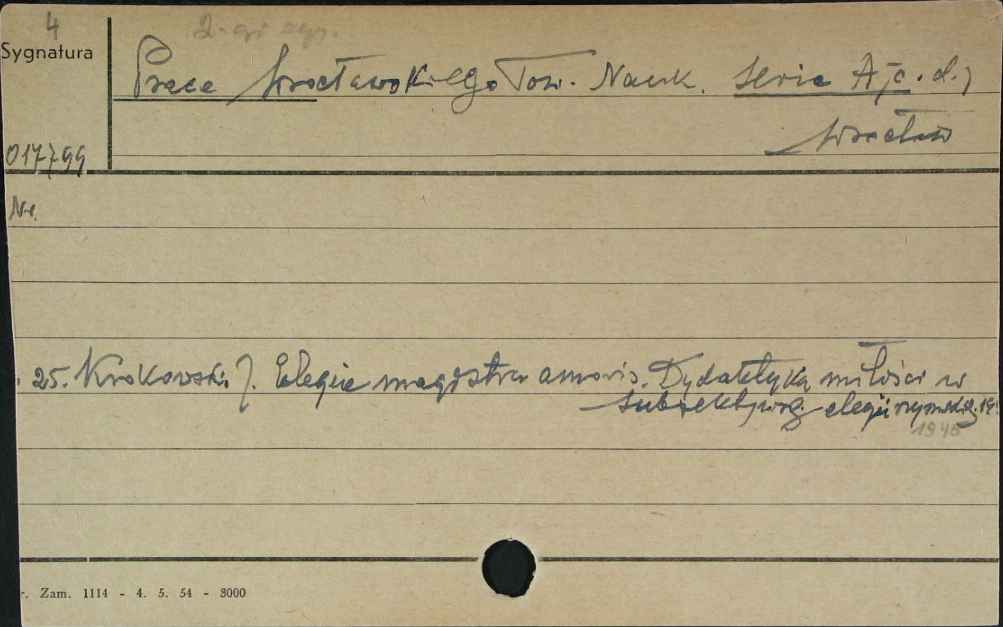 4
2-gi egz.
Sygnatura
Prace Wrocławskiego Tow. Nauk. Seria A /c. d./
Wrocław
017799
Nr.
25. Krokowski J. Elegie magistra amoris. Dydaktyka miłości w
subiektywnej elegii rzymskiej. 19
1948
r. Zam. 1114 - 4. 5. 54 - 3000